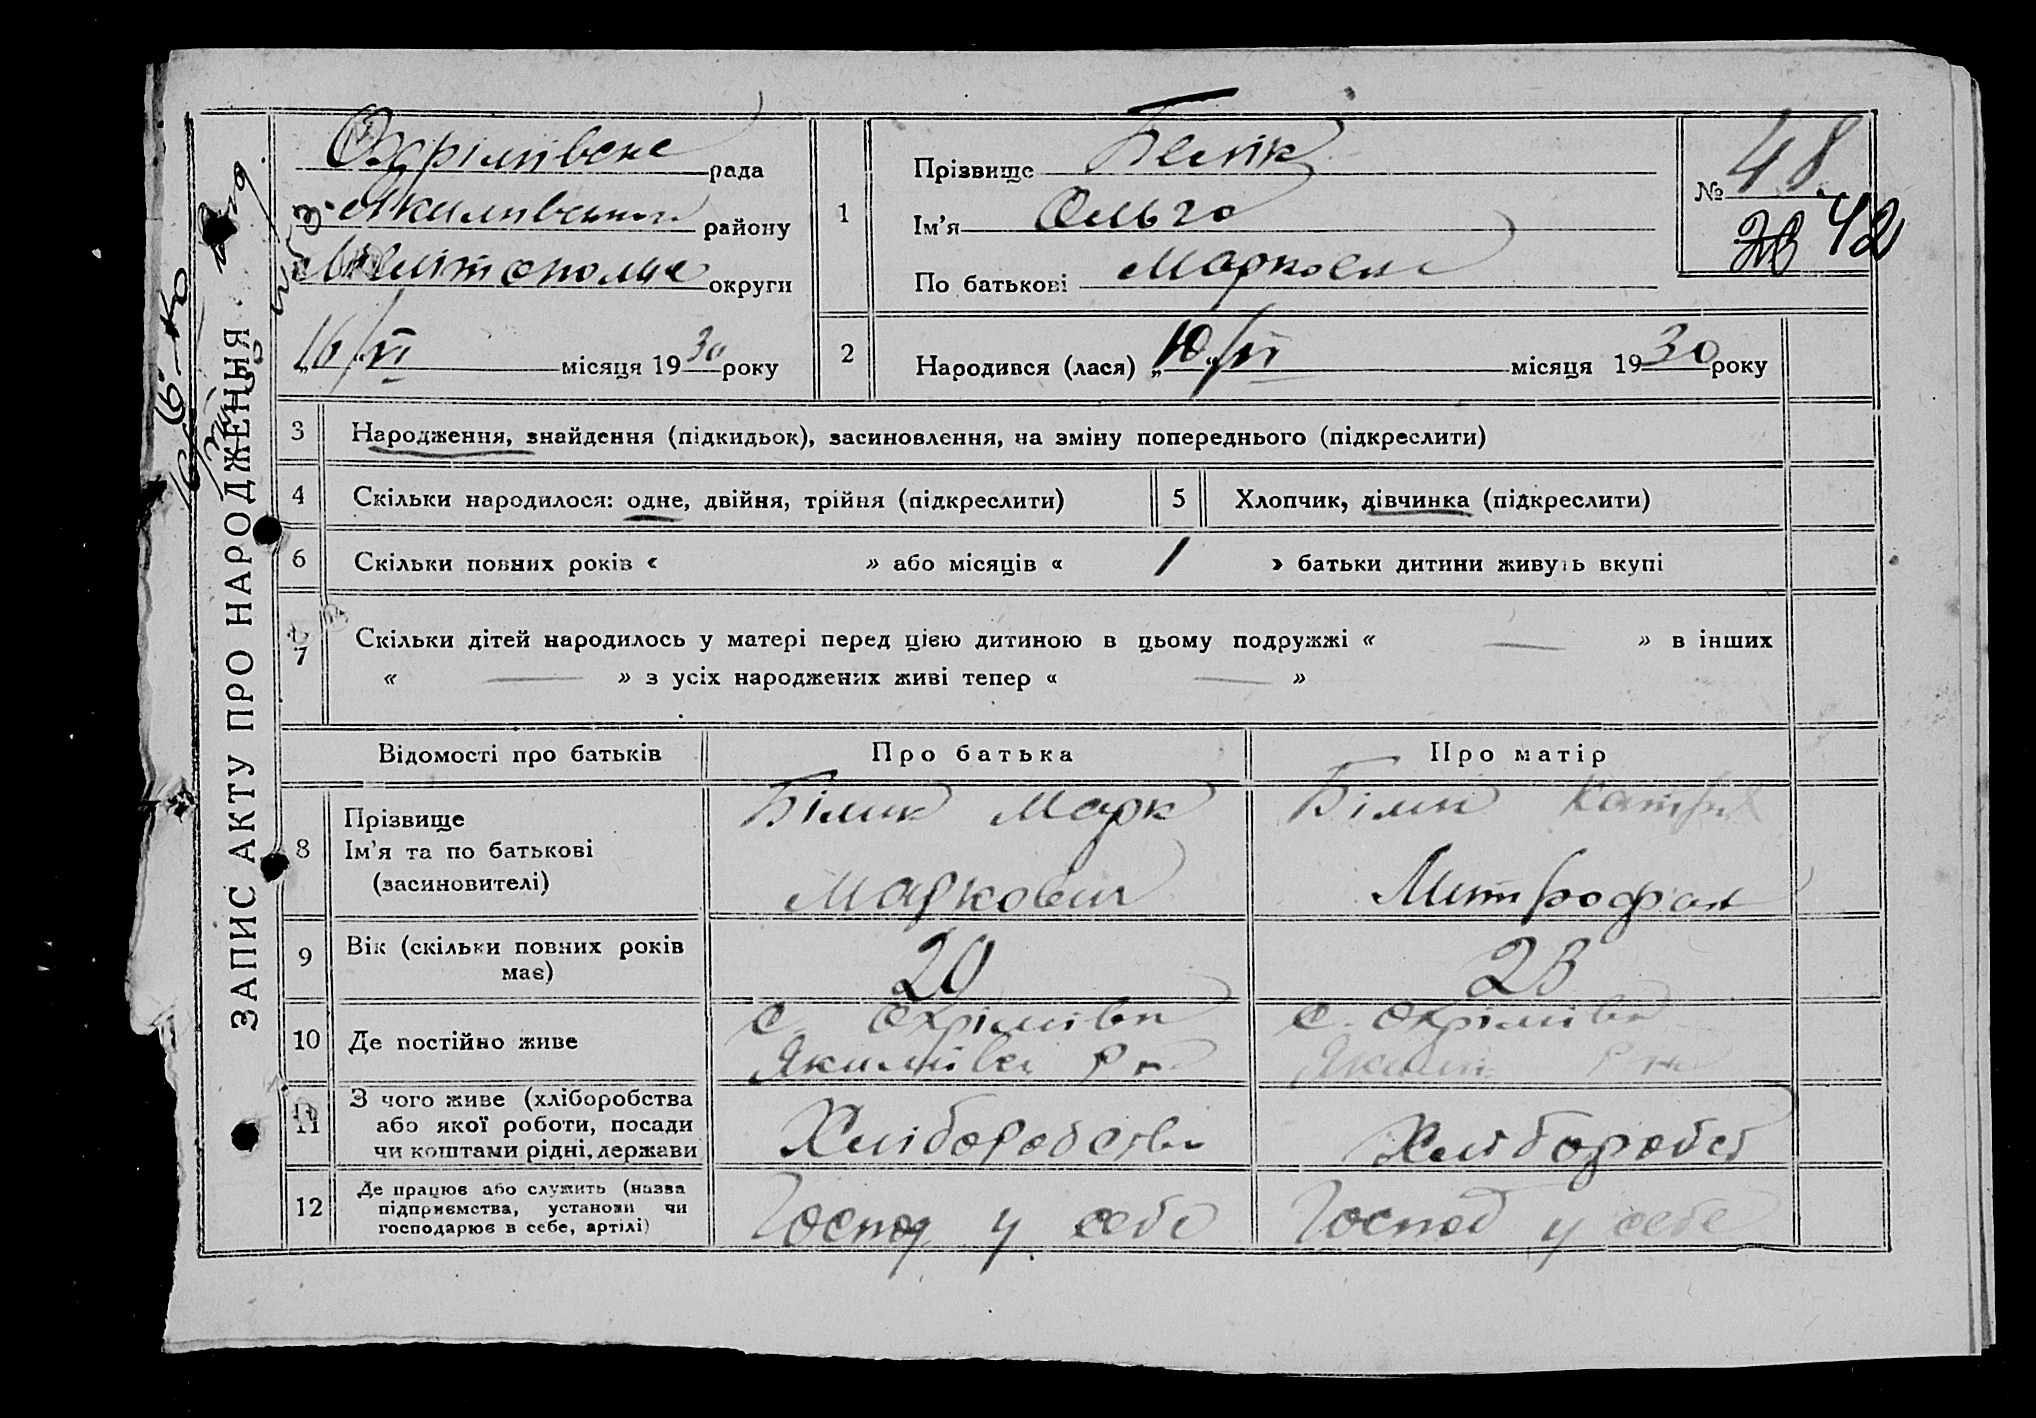 ЗАПИС АКТУ ПРО НАРОДЖЕННЯ
Охрімівське рада
Якимівського району
Мелітопольс округи
„16/VI місяця 1930 року
1
Прізвище Белік
Ім’я Ольга
По батькові Марковна
№ 48
38 42
2
Народився (лася) „10“/VI місяця 1930 року
3 Народження, знайдення (підкидьок), засиновлення, на зміну попереднього (підкреслити)
4 Скільки народилося: одне, двійня, трійня (підкреслити) 5 Хлопчик, дівчинка (підкреслити)
6 Скільки повних років « » або місяців « 1 » батьки дитини живуть вкупі
7 Скільки дітей народилось у матері перед цією дитиною в цьому подружжі « — » в інших
« — » з усіх народжених живі тепер « — »
Відомості про батьків Про батька Про матір
8 Прізвище
Ім’я та по батькові
(засиновителі)
Білик Марк
Маркович
Білик Катря
Митрофан
9 Вік (скільки повних років
має)
20
23
10 Де постійно живе
с. Охрімівка
Якимівсь р н
с. Охрімівка
Яким р н
11 З чого живе (хліборобства
або якої роботи, посади
чи коштами рідні, держави
Хліборобство
Хлібороб
12 Де працює або служить (назва
підприємства, установи чи
господарює в себе, артілі)
Господ у себе
Господ у себе